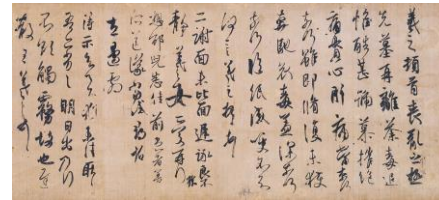 羲之頓首喪亂之極
先墓再離荼毒追
惟酷甚號慕摧絕
痛貫心肝痛當奈何
奈何雖即脩復未獲
奔馳哀毒益深奈何
奈何臨紙感哽不知
何言羲之頓首頓首
二謝面未比面遲詠良
不靜羲之女愛再拜
想邵兒悉佳前患者善
左邊劇
得示知足下猶未佳耿耿
吾亦劣劣明日出乃行
不欲觸霧故也遲
散王羲之頓首